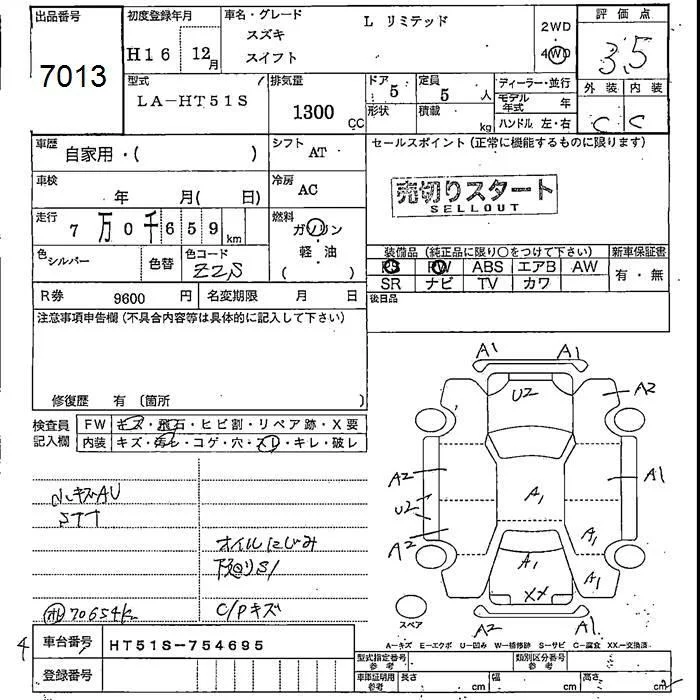 出品番号
7013
初度登録年月
H16 12月
車名・グレード
L リミテッド
スズキ
スイフト
2WD
4WD
評価点
3.5
型式
LA-HT51S
排気量
1300 CC
ドア 5
形状
定員 5 人
積載 kg
ディーラー・並行
モデル年式 年
ハンドル 左・右
外装 内装
C C
車歴
自家用・( )
シフト
AT
セールスポイント(正常に機能するものに限ります)
売切りスタート
SELLOUT
車検
年 月( 日)
冷房
AC
走行
7 万 0 千 6 5 9 km
燃料
ガソリン
軽・油
( )
色
シルバー
色替
色コード
Z2S
装備品(純正品に限り○をつけて下さい)
新車保証書
PS PW ABS エアB AW
有・無
SR ナビ TV カワ
R券 9600 円
名変期限 月 日
後日品
注意事項申告欄(不具合内容等は具体的に記入して下さい)
修復歴 有 (箇所 )
検査員
記入欄
FW キズ・飛石・ヒビ割・リペア跡・X要
内装 キズ・汚レ・コゲ・穴・スレ・キレ・破レ
小キズAU
STT
オイルにじみ
下回りS1
70654k
C/Pキズ
A1 A1
U2 A2
A2 A1 A1
U2
A2 A1
A1 A1
XX
A2 A1
スペア
A-キズ E-エクボ U-凹み W-補修跡 S-サビ C-腐食 XX-交換済
4
車台番号 HT51S-754695
登録番号
型式指定番号
参考
類別区分番号
参考
車庫証明用
参考
長さ cm 幅 cm 高さ cm